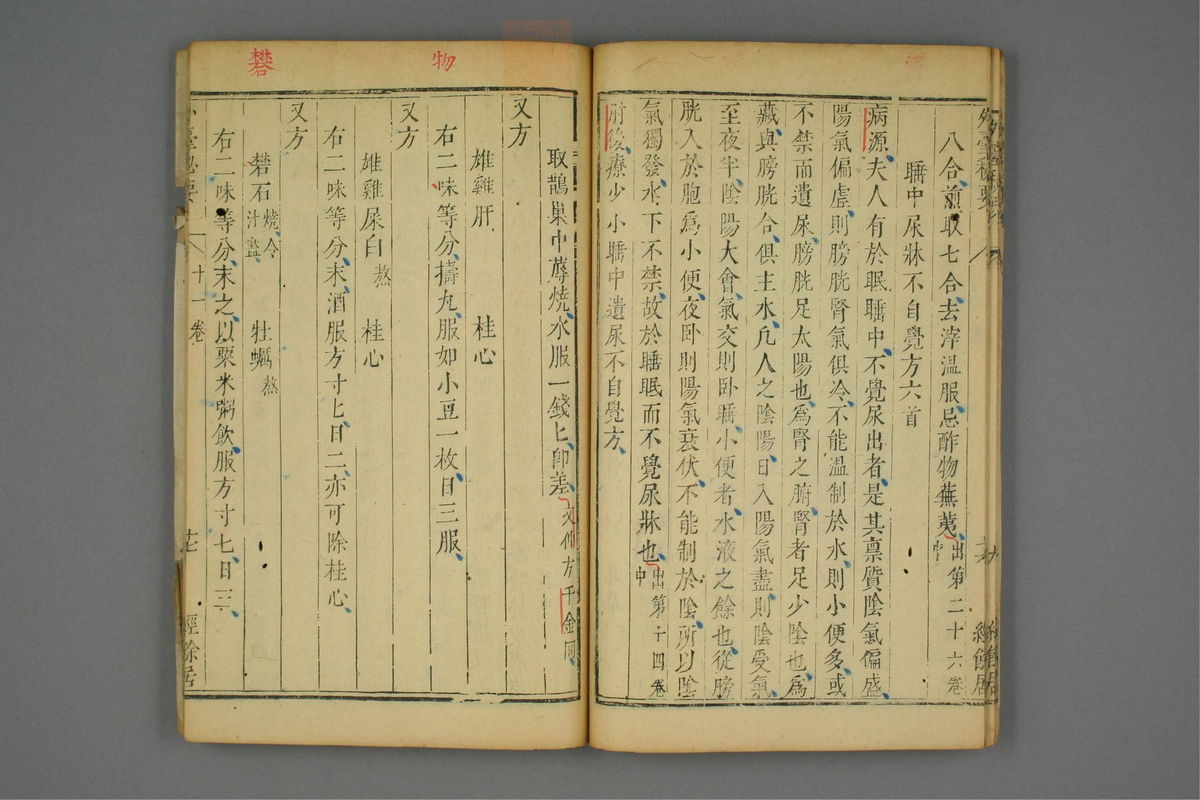 八合煎取七合去滓溫服忌酢物蕪荑出第二十六卷中
睡中尿牀不自覺方六首
病源夫人有於眠睡中不覺尿出者是其稟質陰氣偏盛
陽氣偏虛則膀胱腎氣俱冷不能溫制於水則小便多或
不禁而遺尿膀胱足太陽也爲腎之腑腎者足少陰也爲
藏與膀胱合俱主水凡人之陰陽日入陽氣盡則陰受氣
至夜半陰陽大會氣交則臥睡小便者水液之餘也從膀
胱入於胞爲小便夜臥則陽氣衰伏不能制於陰所以陰
氣獨發水下不禁故於睡眠而不覺尿牀也出第十四卷中
肘後療少小睡中遺尿不自覺方
取鵲巢中蓐燒水服一錢匕卽差文仲方千金同
又方
雄雞肝 桂心
右二味等分擣丸服如小豆一枚日三服
又方
雄雞屎白熬 桂心
右二味等分末酒服方寸匕日二亦可除桂心
又方
礬石燒令汁盡 牡蠣熬
右二味等分末之以粟米粥飲服方寸匕日三
外臺秘要
十一卷
經餘居
物
礬